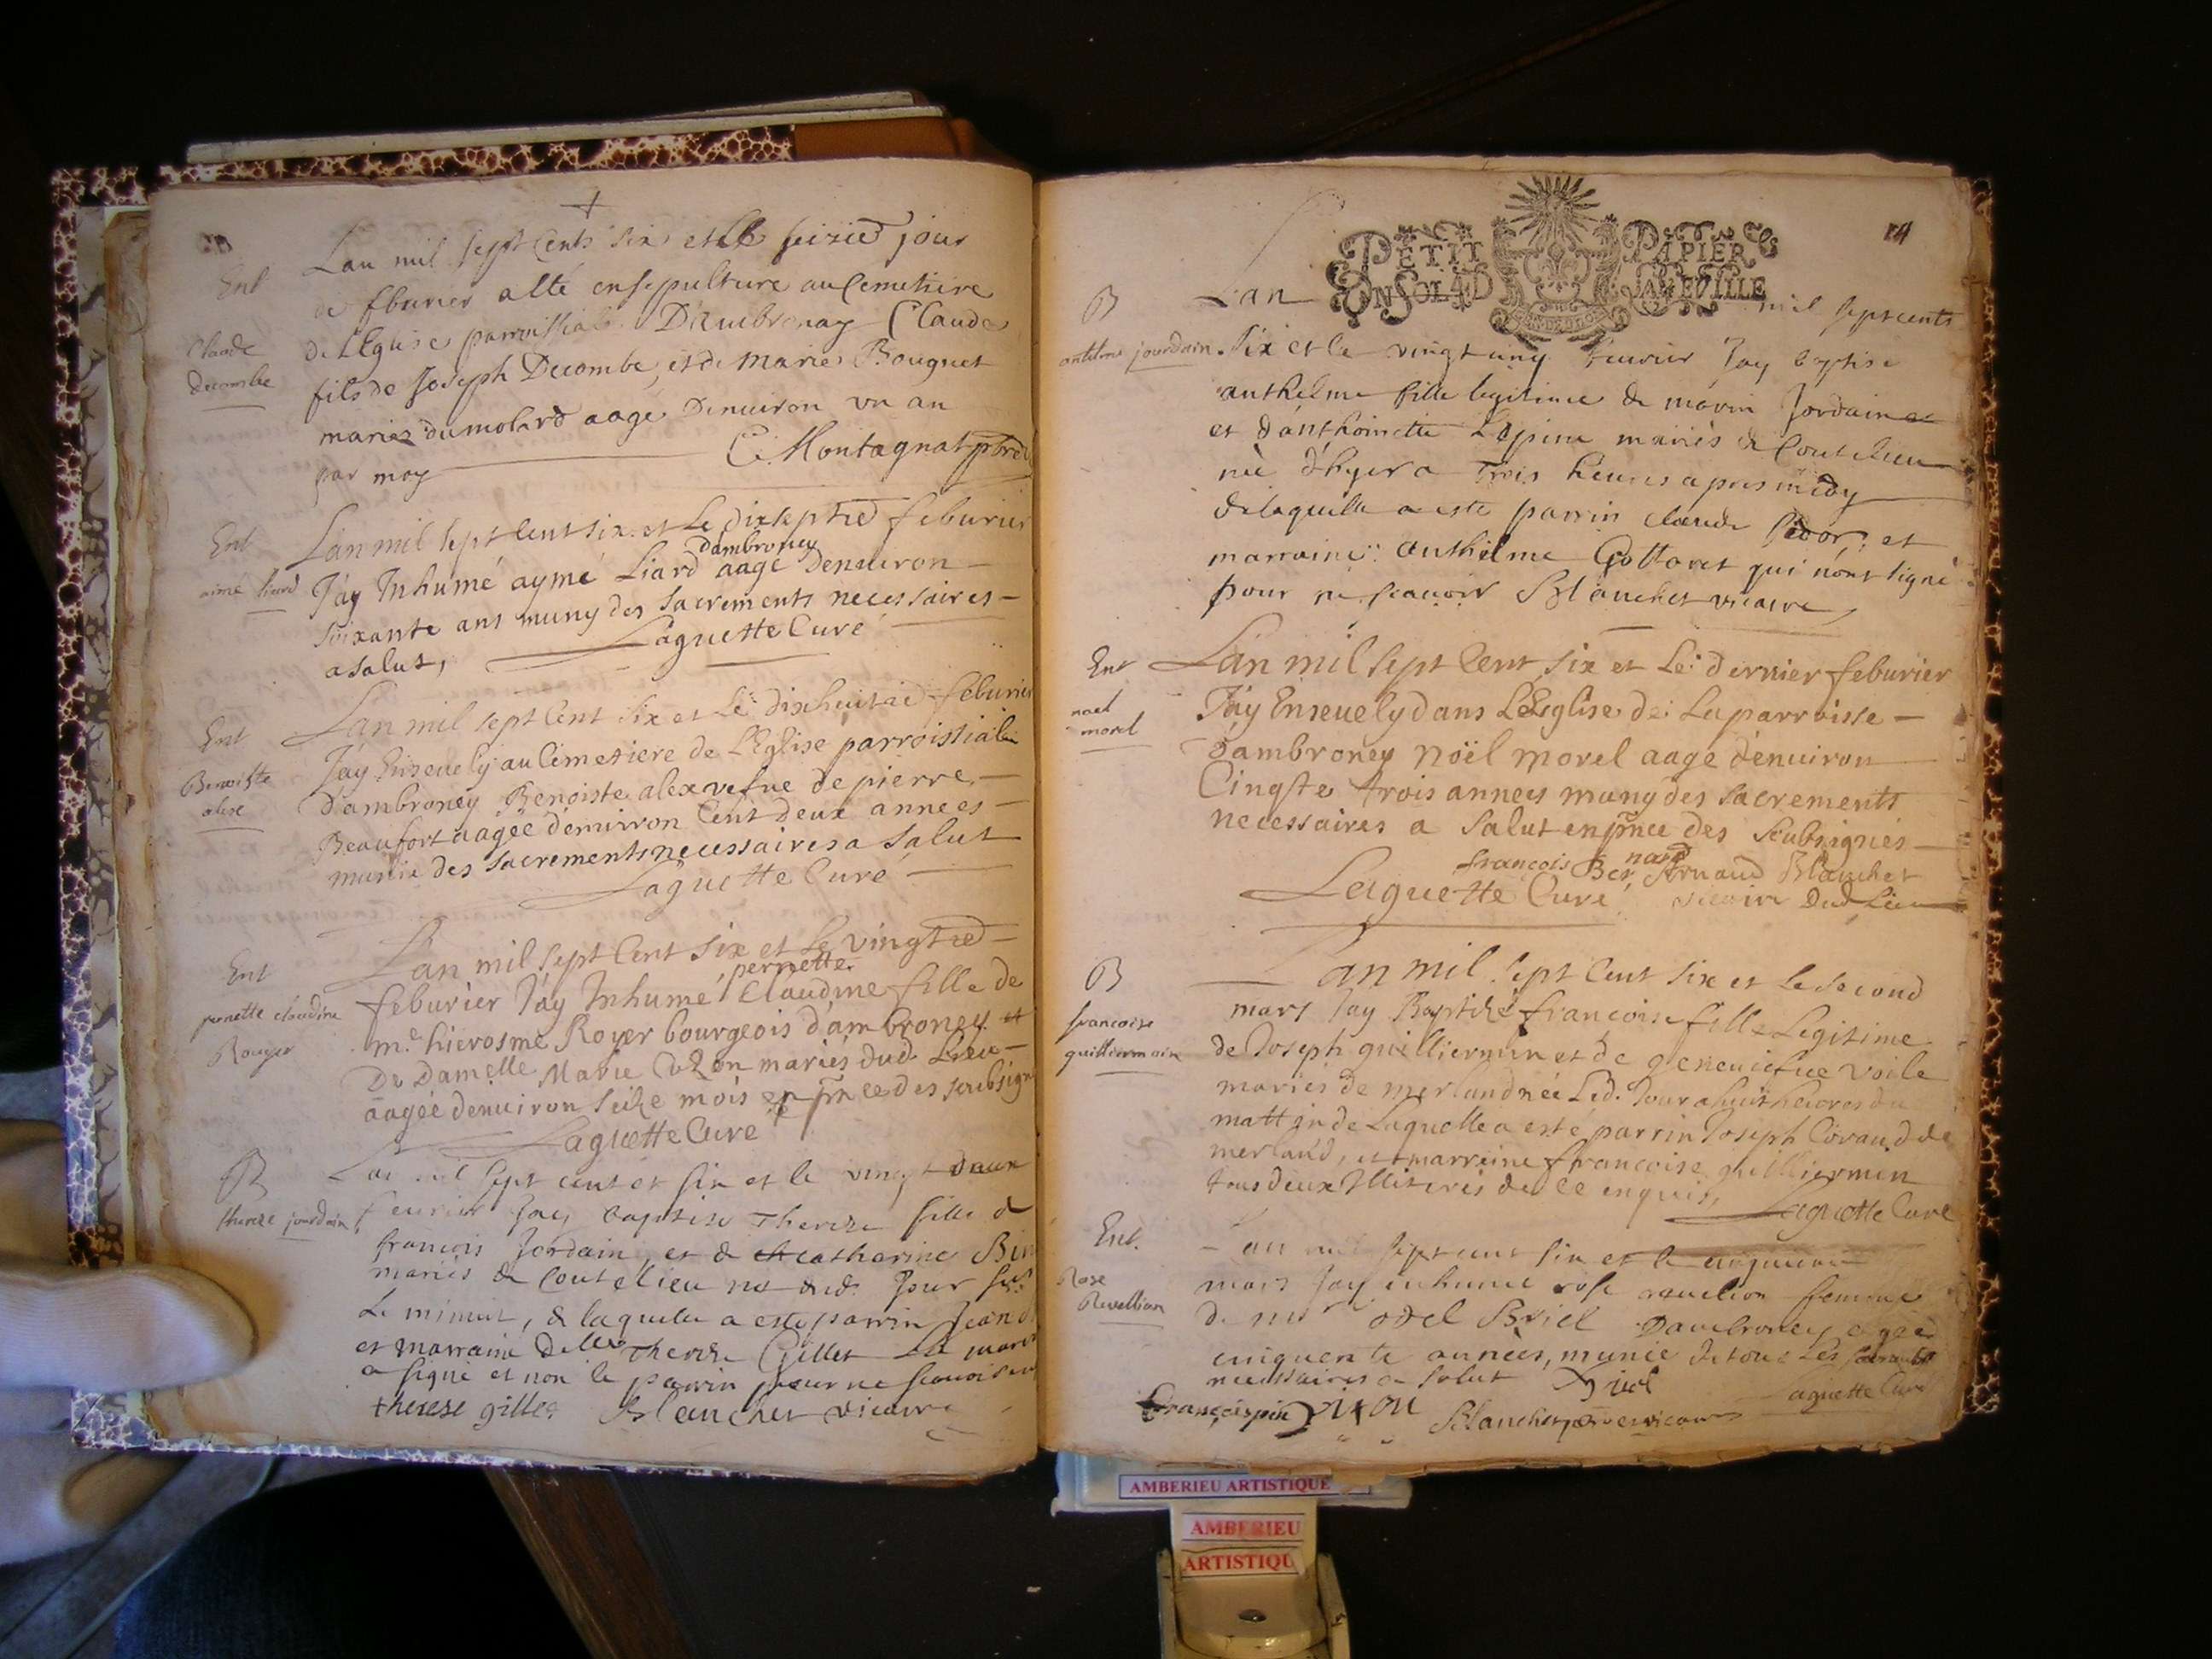 Ent
Claude
Decombe
Lan mil sept Cents six et le seizied jour
de fburier a esté ensepulture au Cemetiere
de LEglise parroissiale D'Ambronay Claude
fils de Joseph Decombe, et de Marie Bouguet
mariez du molard aagé Denuiron vn an
par moy C. Montagnat pbre
Ent
aimé liard
Lan mil sept Cent six et Le dixseptied feburier
dambroney
J'ay Inhumé aymé Liard aagé Denuiron
soixante ans muny des sacrements necessaires
a salut, Laguette Curé
Ent
Benoiste
alex
Lan mil sept Cent six et Le dixhuitied feburier
J'ay Enseuely au Cimetiere de L'Eglise parroissialle
D'ambroney Benoiste alex vefue de pierre
Beaufort aagée denuiron Cent deux annees
munie des sacrements necessaires a salut
Laguette Curé
Ent
pernette claudine
Royer
Lan mil sept Cent six et Le vingtied
pernette
feburier J'ay Inhumé Claudine fille de
m.e hierosme Royer bourgeois d'ambroney et
De Damelle Marie mariés dud. Lieu
aagée denuiron seize mois en pnce des soubsignés
Laguette Curé
B
therese jourdain
Lan mil sept cent et six et le vingt deux
feurier Jay baptise Therese fille de
francois Jordain, et de catharine
mariés de Coutelieu née dud. Jour
Le minuit, de laquelle a este parrin Jean
et marraine Delle Therese Gillet La marraine
a signé et non le parrin pour ne scauoir
therese gillet Blanchet vicaire
14
PETIT PAPIER
UN SOL 4 D LA FEUILLE
B
antelme jourdain.
Lan mil sept cents
six et le vingt cinq feurier Jay baptise
anthelme fille legitime de marin Jordain
et d'anthoinette Lepine mariés de Coutelieu
née d'hyer a trois heures apres midy
de laquelle a este parrin claude et
marraine anthelme Gottaret qui n'ont signé
pour ne scauoir Blanchet vicaire
Ent
noel
morel
Lan mil sept Cent six et Le dernier feburier
J'ay Enseuely dans L'Eglise de La parroisse
dambroney Noël Morel aagé denuiron
Cinqte trois annees muny des sacrements
necessaires a salut en pnce des soubsignés
françois Bernard Arnaud Blanchet
Laguette Curé vicaire Dud. Lieu
B
francoise
guilliermin
Lan mil sept Cent six et le second
mars Jay Baptizé francoise fille Legitime
de Joseph guilliermin et de geneuiefue Voile
mariés de merland née Led. Jour a huit heures du
mattin de Laquelle a esté parrin Joseph de
merland, et marreine francoise guilliermin
tous deux Illiterés de ce enquis, Laguette Curé
Ent.
Rose
Reuellion
Lan mil sept cent six et le cinquieme
mars Jay inhumé rose reuelion femme
de mr odel Bviel Dambroney agée
cinquente années, munie de tous Les sacrements
necessaires a salut Laguette Curé
François Blanchet vicaire
AMBERIEU ARTISTIQUE
AMBERIEU
ARTISTIQU